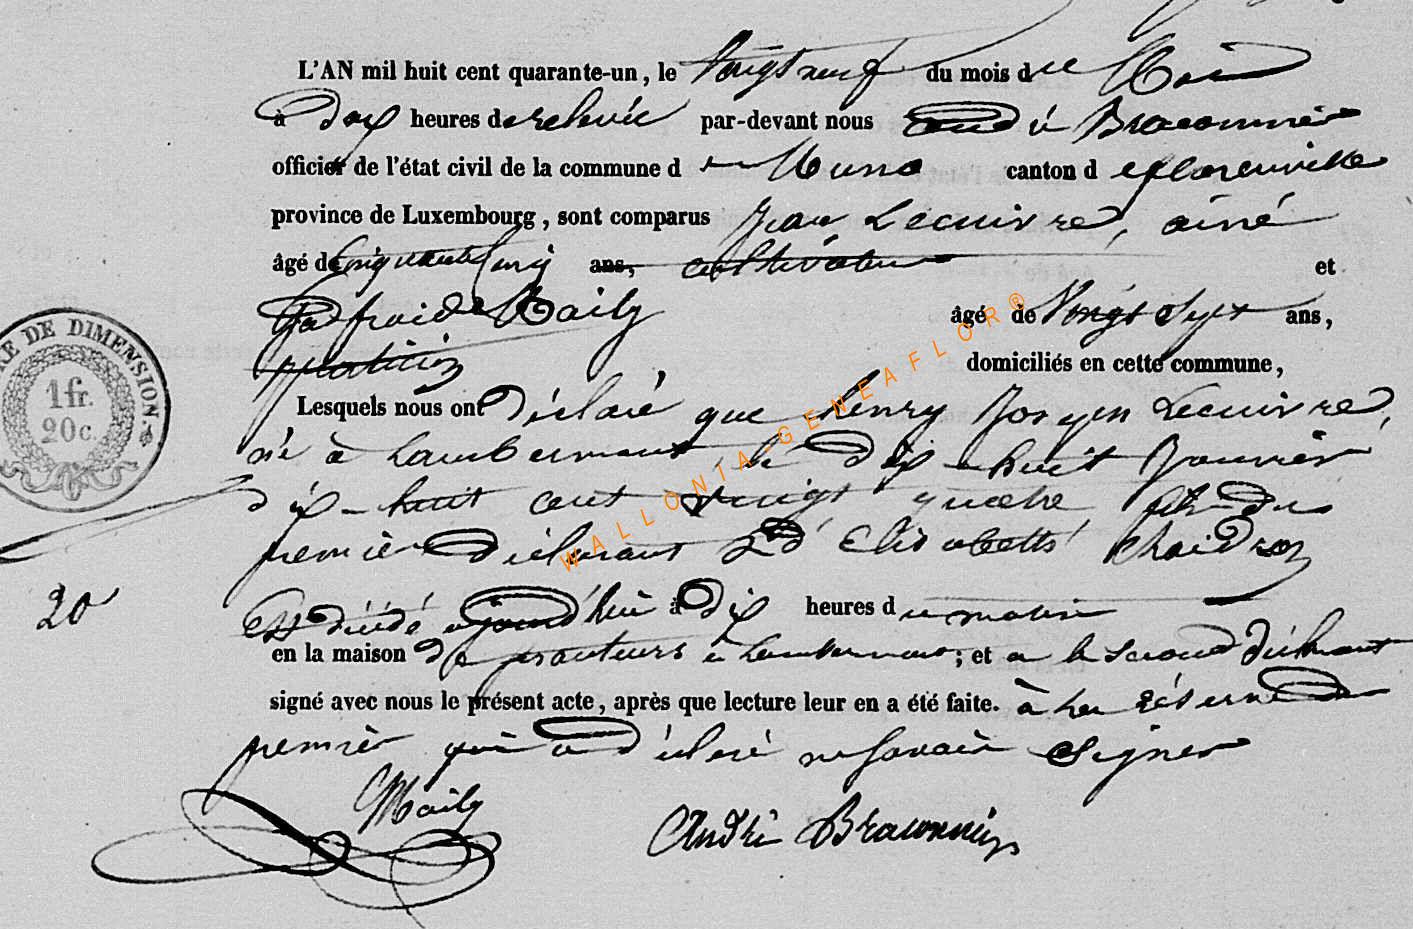 L'AN mil huit cent quarante-un, le Vingt neuf du mois de Mai
à dix heures de relevée par-devant nous andré Braconnier
officier de l'état civil de la commune de Muno canton de florenville
province de Luxembourg, sont comparus Jean Lecuivre, ainé
âgé de Cinquante Cinq ans, cultivateur et
Godfroid Maily âgé de Vingt Sept ans,
praticien domiciliés en cette commune,
Lesquels nous ont déclaré que henry Joseph Lecuivre,
né à Lambermont, le dix-huit Janvier
dix-huit cent vingt quatre fils du
premier déclarant & d'Elisabeth Chaidron
Est décédé aujourd'hui à dix heures du matin
en la maison de à Lambermont; et a le second déclarant
signé avec nous le présent acte, après que lecture leur en a été faite. à la réserve du
premier qui a déclaré ne savoir signer
Maily André Braconnier
RE DE DIMENSION
1 fr.
20 c.
20
WALLONIA-GENEAFLOR®